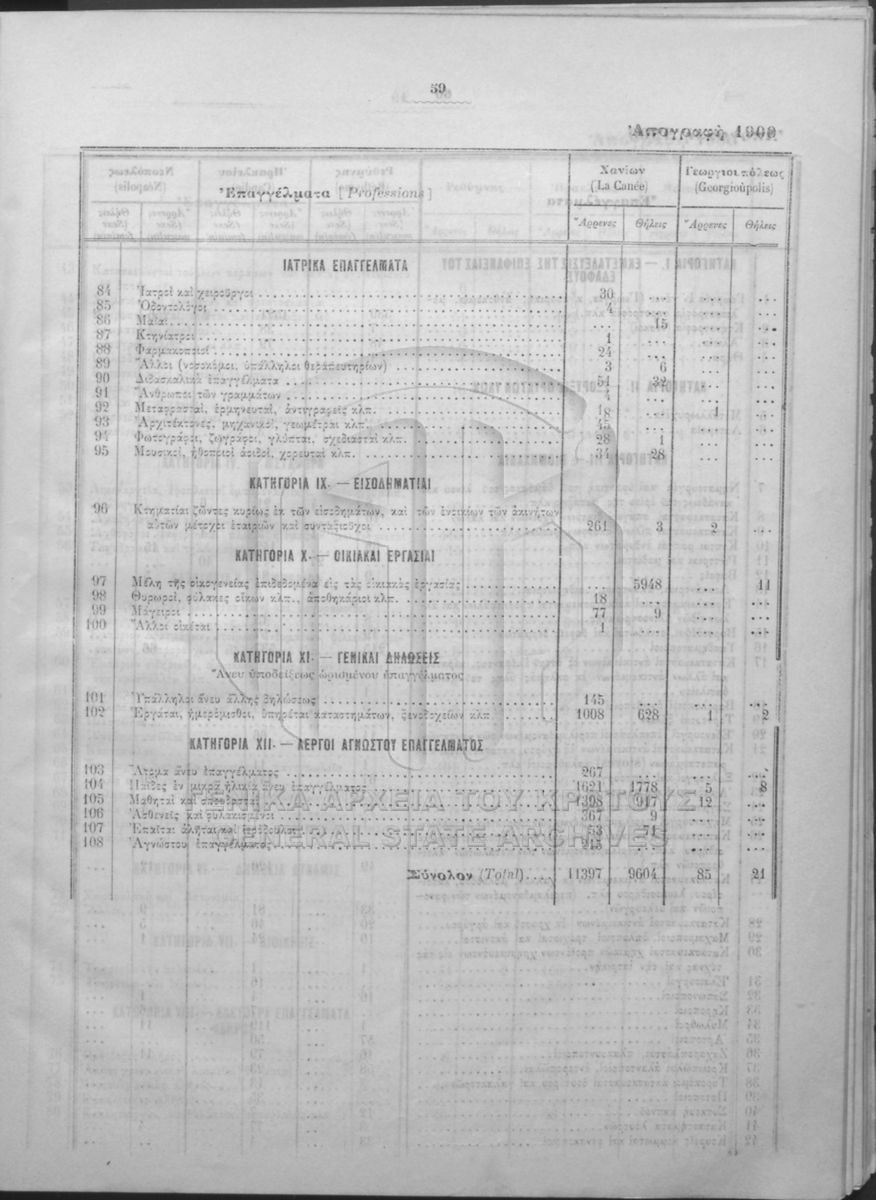 59
Ἀπογραφὴ 1900
Ἐπαγγέλματα [Professions]
Χανίων (La Canée)
Γεωργιουπόλεως (Georgioùpolis)
Ἄρρενες Θήλεις Ἄρρενες Θήλεις
ΙΑΤΡΙΚΑ ΕΠΑΓΓΕΛΜΑΤΑ
84 Ἰατροὶ καὶ χειροῦργοι 30 ... ... ...
85 Ὀδοντολόγοι 4 ... ... ...
86 Μαῖαι ... 15 ... ...
87 Κτηνίατροι 1 ... ... ...
88 Φαρμακοποιοί 24 ... ... ...
89 Ἄλλοι (νοσοκόμοι, ὑπάλληλοι θεραπευτηρίων) 3 6 ... ...
90 Διδασκαλικὰ ἐπαγγέλματα 51 32 ... ...
91 Ἄνθρωποι τῶν γραμμάτων 4 ... ... ...
92 Μεταφρασταί, ἑρμηνευταί, ἀντιγραφεῖς κλπ. 18 ... 1 ...
93 Ἀρχιτέκτονες, μηχανικοί, γεωμέτραι κλπ. 45 ... ... ...
94 Φωτογράφοι, ζωγράφοι, γλύπται, σχεδιασταὶ κλπ. 28 1 ... ...
95 Μουσικοί, ἠθοποιοὶ ἀοιδοί, χορευταὶ κλπ. 34 28 ... ...
ΚΑΤΗΓΟΡΙΑ ΙΧ. — ΕΙΣΟΔΗΜΑΤΙΑΙ
96 Κτηματίαι ζῶντες κυρίως ἐκ τῶν εἰσοδημάτων, καὶ τῶν ἐνοικίων τῶν ἀκινήτων
αὐτῶν μέτοχοι ἑταιριῶν καὶ συνταξιοῦχοι 261 3 2 ...
ΚΑΤΗΓΟΡΙΑ Χ. — ΟΙΚΙΑΚΑΙ ΕΡΓΑΣΙΑΙ
97 Μέλη τῆς οἰκογενείας ἐπιδεδομένα εἰς τὰς οἰκιακὰς ἐργασίας ... 5948 ... 11
98 Θυρωροί, φύλακες οἴκων κλπ., ἀποθηκάριοι κλπ. 18 ... ... ...
99 Μάγειροι 77 9 ... ...
100 Ἄλλοι οἰκέται 1 ... ... ...
ΚΑΤΗΓΟΡΙΑ ΧΙ. — ΓΕΝΙΚΑΙ ΔΗΛΩΣΕΙΣ
Ἄνευ ὑποδείξεως ὡρισμένου ἐπαγγέλματος
101 Ὑπάλληλοι ἄνευ ἄλλης δηλώσεως 145 ... ... ...
102 Ἐργάται, ἡμερόμισθοι, ὑπηρέται καταστημάτων, ξενοδοχείων κλπ 1008 628 1 2
ΚΑΤΗΓΟΡΙΑ ΧΙΙ. — ΑΕΡΓΟΙ ΑΓΝΩΣΤΟΥ ΕΠΑΓΓΕΛΜΑΤΟΣ
103 Ἄτομα ἄνευ ἐπαγγέλματος 267 ... ... ...
104 Παῖδες ἐν μικρᾷ ἡλικίᾳ ἄνευ ἐπαγγέλματος 1621 1778 5 8
105 Μαθηταὶ καὶ σπουδασταί 1398 917 12 ...
106 Ἀσθενεῖς καὶ φυλακισμένοι 367 9 ... ...
107 Ἐπαῖται ἀλῆται καὶ ἱερόδουλοι 53 71 ... ...
108 Ἀγνώστου ἐπαγγέλματος 215 ... ... ...
Σύνολον (Total) 11397 9604 85 21
ΓΕΝΙΚΑ ΑΡΧΕΙΑ ΤΟΥ ΚΡΑΤΟΥΣ
GENERAL STATE ARCHIVES